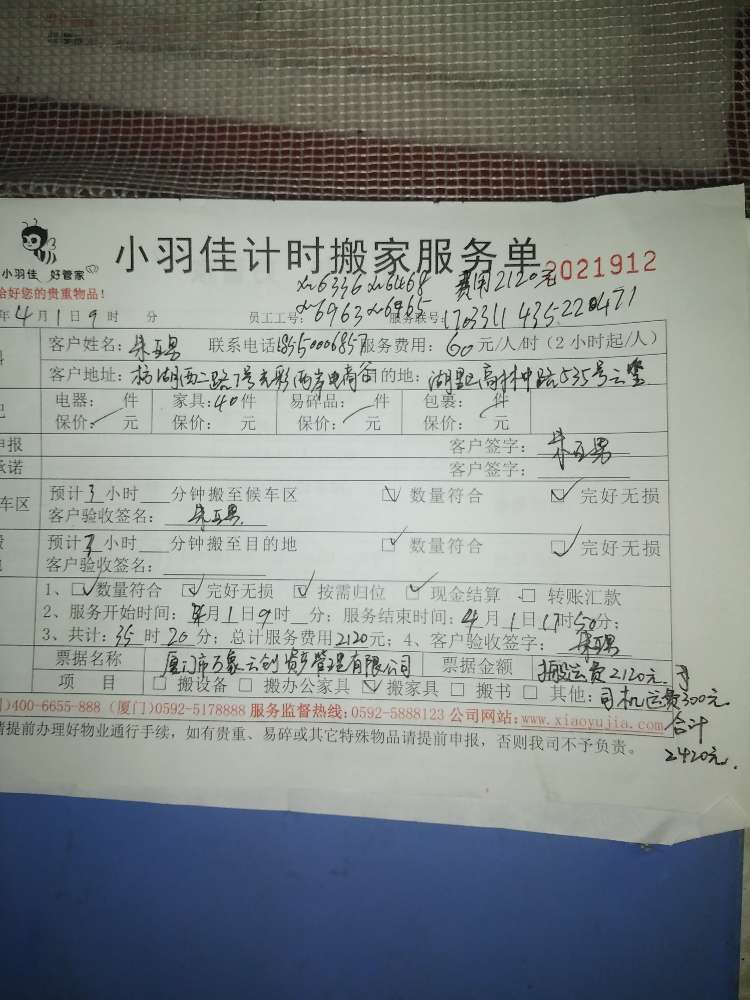 小羽佳 好管家
小羽佳计时搬家服务单
2021912
给好您的贵重物品！
6336 6468 费用2120元
6963 6965 1703311 435220471
年4月1日9时 分 员工工号： 服务联号：
客户姓名： 联系电话 服务费用：60元/人/时（2小时起/人）
客户地址： 目的地：
电器： 件 家具：40件 易碎品： 件 包裹： 件
保价： 元 保价： 元 保价： 元 保价： 元
申报 客户签字：
承诺 客户签字：
车区 预计3小时 分钟搬至候车区 数量符合 完好无损
客户验收签名：
预计3小时 分钟搬至目的地 数量符合 完好无损
客户验收签名：
1、 数量符合 完好无损 按需归位 现金结算 转账汇款
2、服务开始时间：4月1日9时 分；服务结束时间：4月1日17时50分；
3、共计：35时20分；总计服务费用2120元；4、客户验收签字：
票据名称 厦门市万象云创资产管理有限公司 票据金额 搬运费2120元
项目 搬设备 搬办公家具 搬家具 搬书 其他：司机运费300元
合计
2420元
)400-6655-888 (厦门)0592-5178888 服务监督热线：0592-5888123 公司网站：www.xiaoyujia.com
请提前办理好物业通行手续，如有贵重、易碎或其它特殊物品请提前申报，否则我司不予负责。